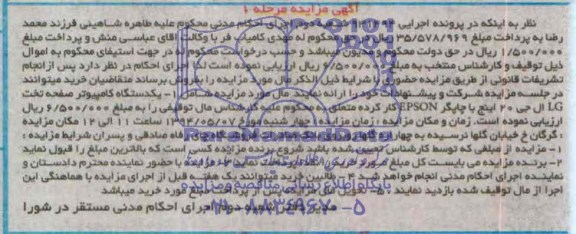 آگهی مزایده مرحله ۱
نظر به اینکه در پرونده اجرایی اجرای احکام مدنی محکوم علیه طاهره شاهینی فرزند محمد
رضا به پرداخت مبلغ ۳۵/۵۷۸/۹۶۹ ریال در حق محکوم له مهدی کامیاب فر با وکالت آقای عباسی منش و پرداخت مبلغ
۱/۵۰۰/۰۰۰ ریال در حق دولت محکوم و مدیون میباشد و حسب درخواست محکوم له در جهت استیفای محکوم به اموال
ذیل توقیف و کارشناس منتخب به مبلغ ۶/۵۰۰/۰۰۰ ریال ارزیابی نموده است لذا اجرای احکام در نظر دارد پس از انجام
تشریفات قانونی از طریق مزایده حضوری با شرایط ذیل الذکر مال مورد مزایده را بفروش برساند متقاضیان خرید میتوانند
در جلسه مزایده شرکت و پیشنهاد خود را ارائه نمایند مال مورد مزایده شامل ۱- یکدستگاه کامپیوتر صفحه تخت
LG ال جی ۲۰ اینچ با چاپگر EPSON کار کرده متعلق به محکوم علیه کارشناس مال توقیفی را به مبلغ ۶/۵۰۰/۰۰۰ ریال
ارزیابی نموده است. زمان و مکان مزایده: زمان مزایده: چهار شنبه مورخ ۱۳۹۴/۰۵/۰۷ ساعت ۱۱ الی ۱۲ مکان مزایده
: گرگان خ خیابان گلها نرسیده به چهار راه صادقی و پسران شرایط مزایده:
۱- مزایده از مبلغی که توسط کارشناس تعیین شده باشد شروع برنده مزایده کسی است که بالاترین مبلغ را قبول نماید
۲- برنده مزایده می بایست کل مبلغ مزایده با حضور نماینده محترم دادستان و
نماینده اجرای احکام مدنی انجام خواهد شد ۴- طالبین خرید میتوانند یک هفته قبل از اجرای مزایده با هماهنگی این
اجرا از مال توقیف شده بازدید نمایند ۵- تحویل مال مزایده پس از پرداخت مبلغ مورد خرید میباشد
مدیر دفتر شعبه دوم اجرای احکام مدنی مستقر در شورا
پایگاه اطلاع رسانی مناقصه و مزایده
۰۲۱-۸۸۳۴۹۶۷۰-۵